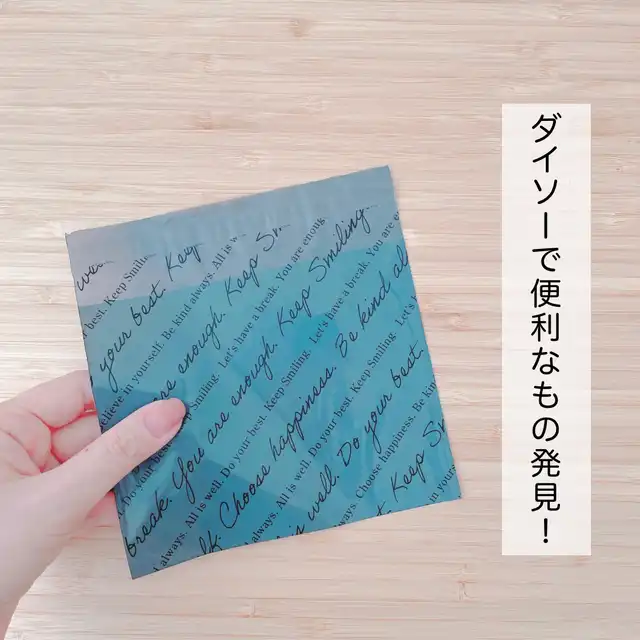 ダイソーで便利なもの発見！
your best. Keep
best. Keep Smiling. Be kind always. All is w
enough. Keep
Believe in yourself.
Let's have a break. You are enoug
You are enough. Keep Smiling.
break.
Do your best. Keep Smiling. Let's have a break.
Choose happiness. Be kind al
always. All is well. Do your best. Keep Smiling. Let's
is well. Do your best.
always. Choose happiness. Be kin
Keep
in yours